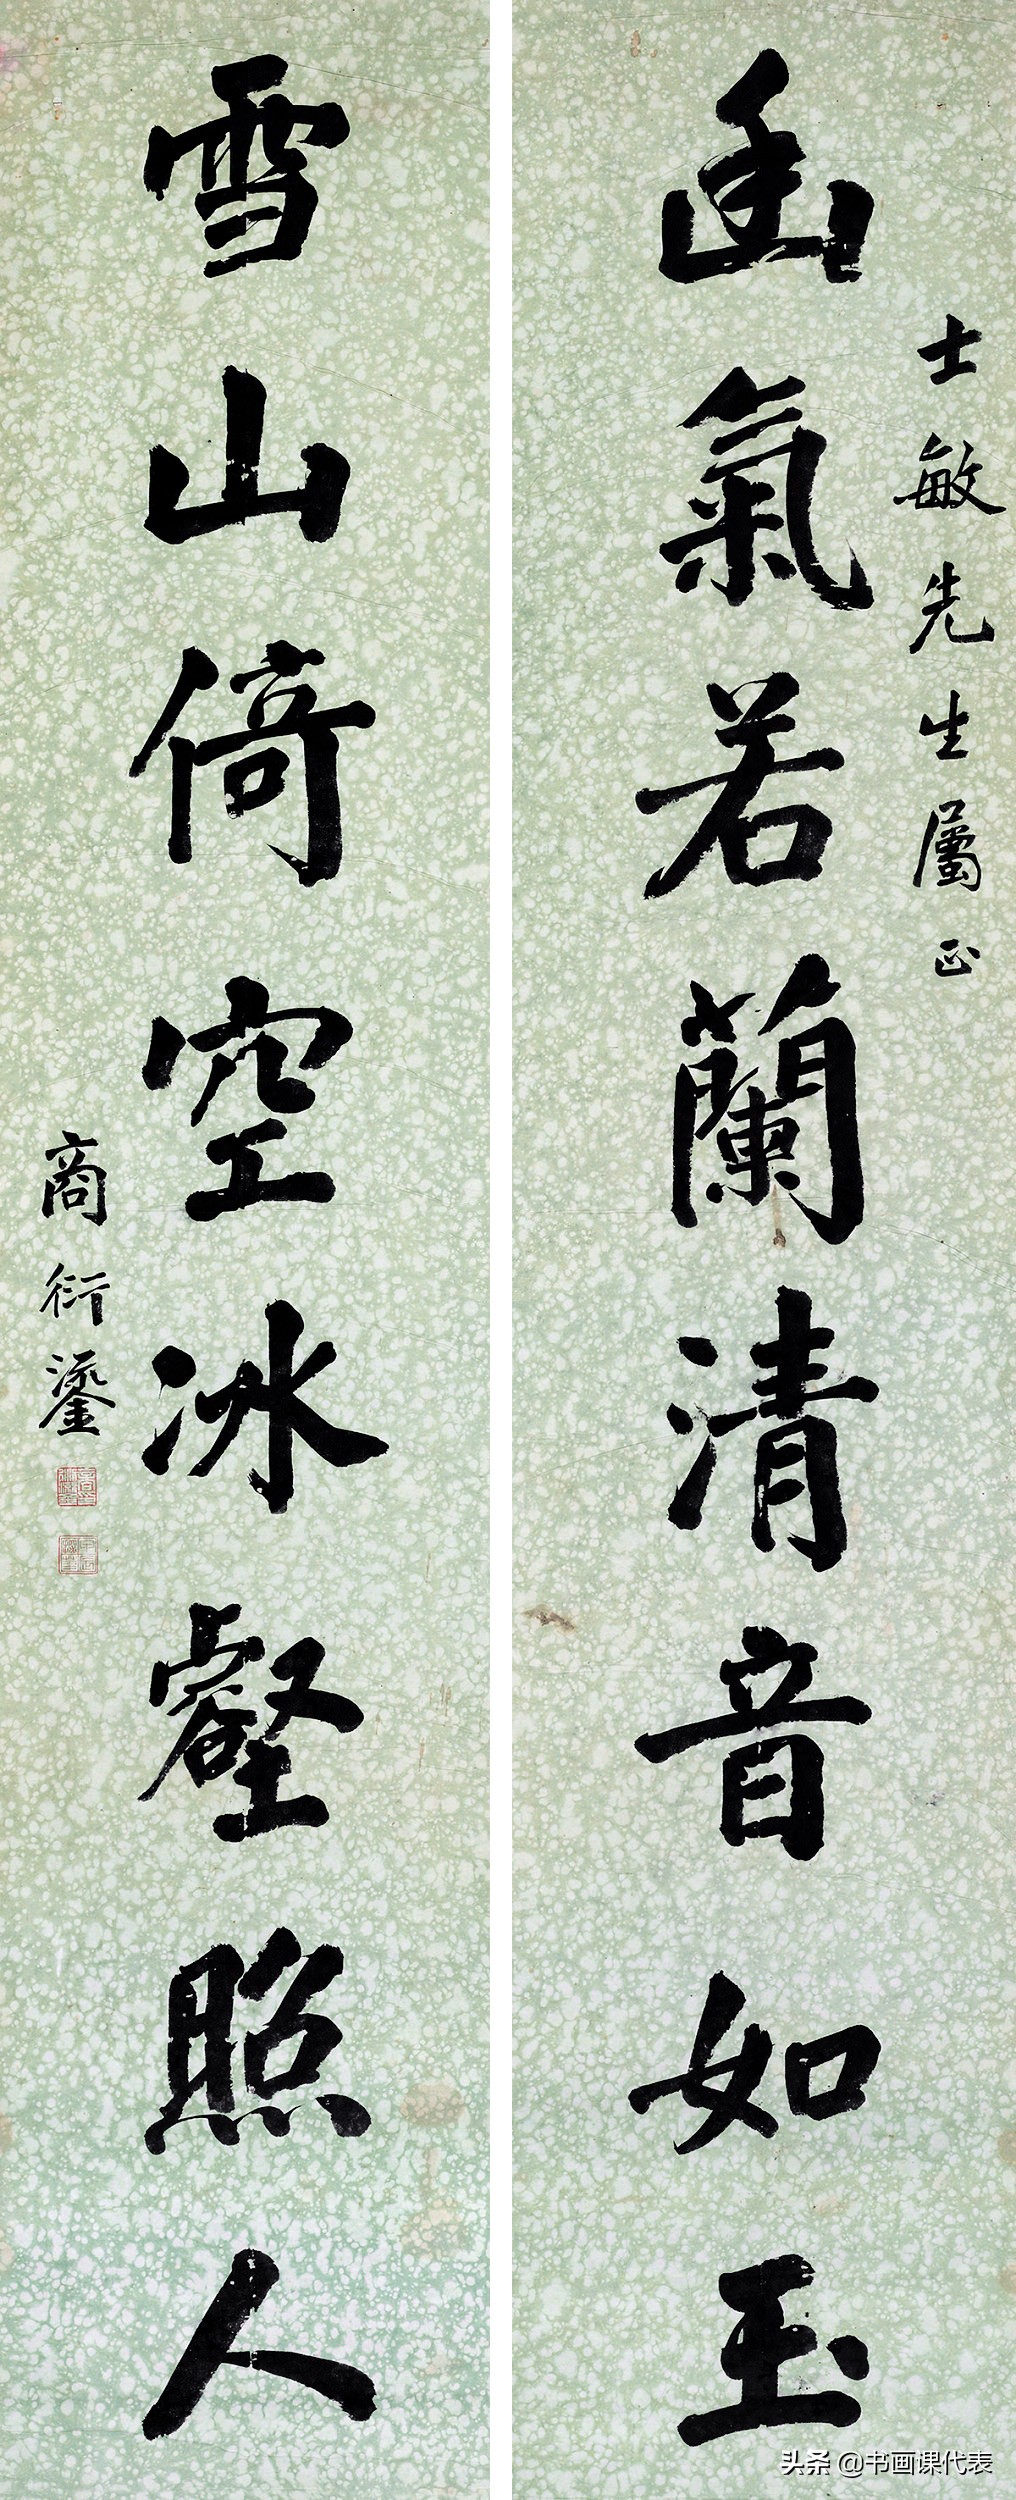 士敏先生屬正
幽氣若蘭清音如玉
雪山倚空冰壑照人
商衍鎏
头条 @书画课代表